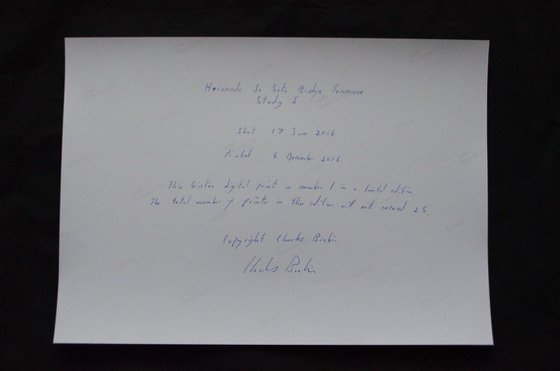 Hernando de Soto Bridge, Tennessee
Study I
Shot 17 June 2016
Printed 6 December 2016
This Giclée digital print is number 1 in a limited edition
The total number of prints in this edition will not exceed 25
Copyright Charles